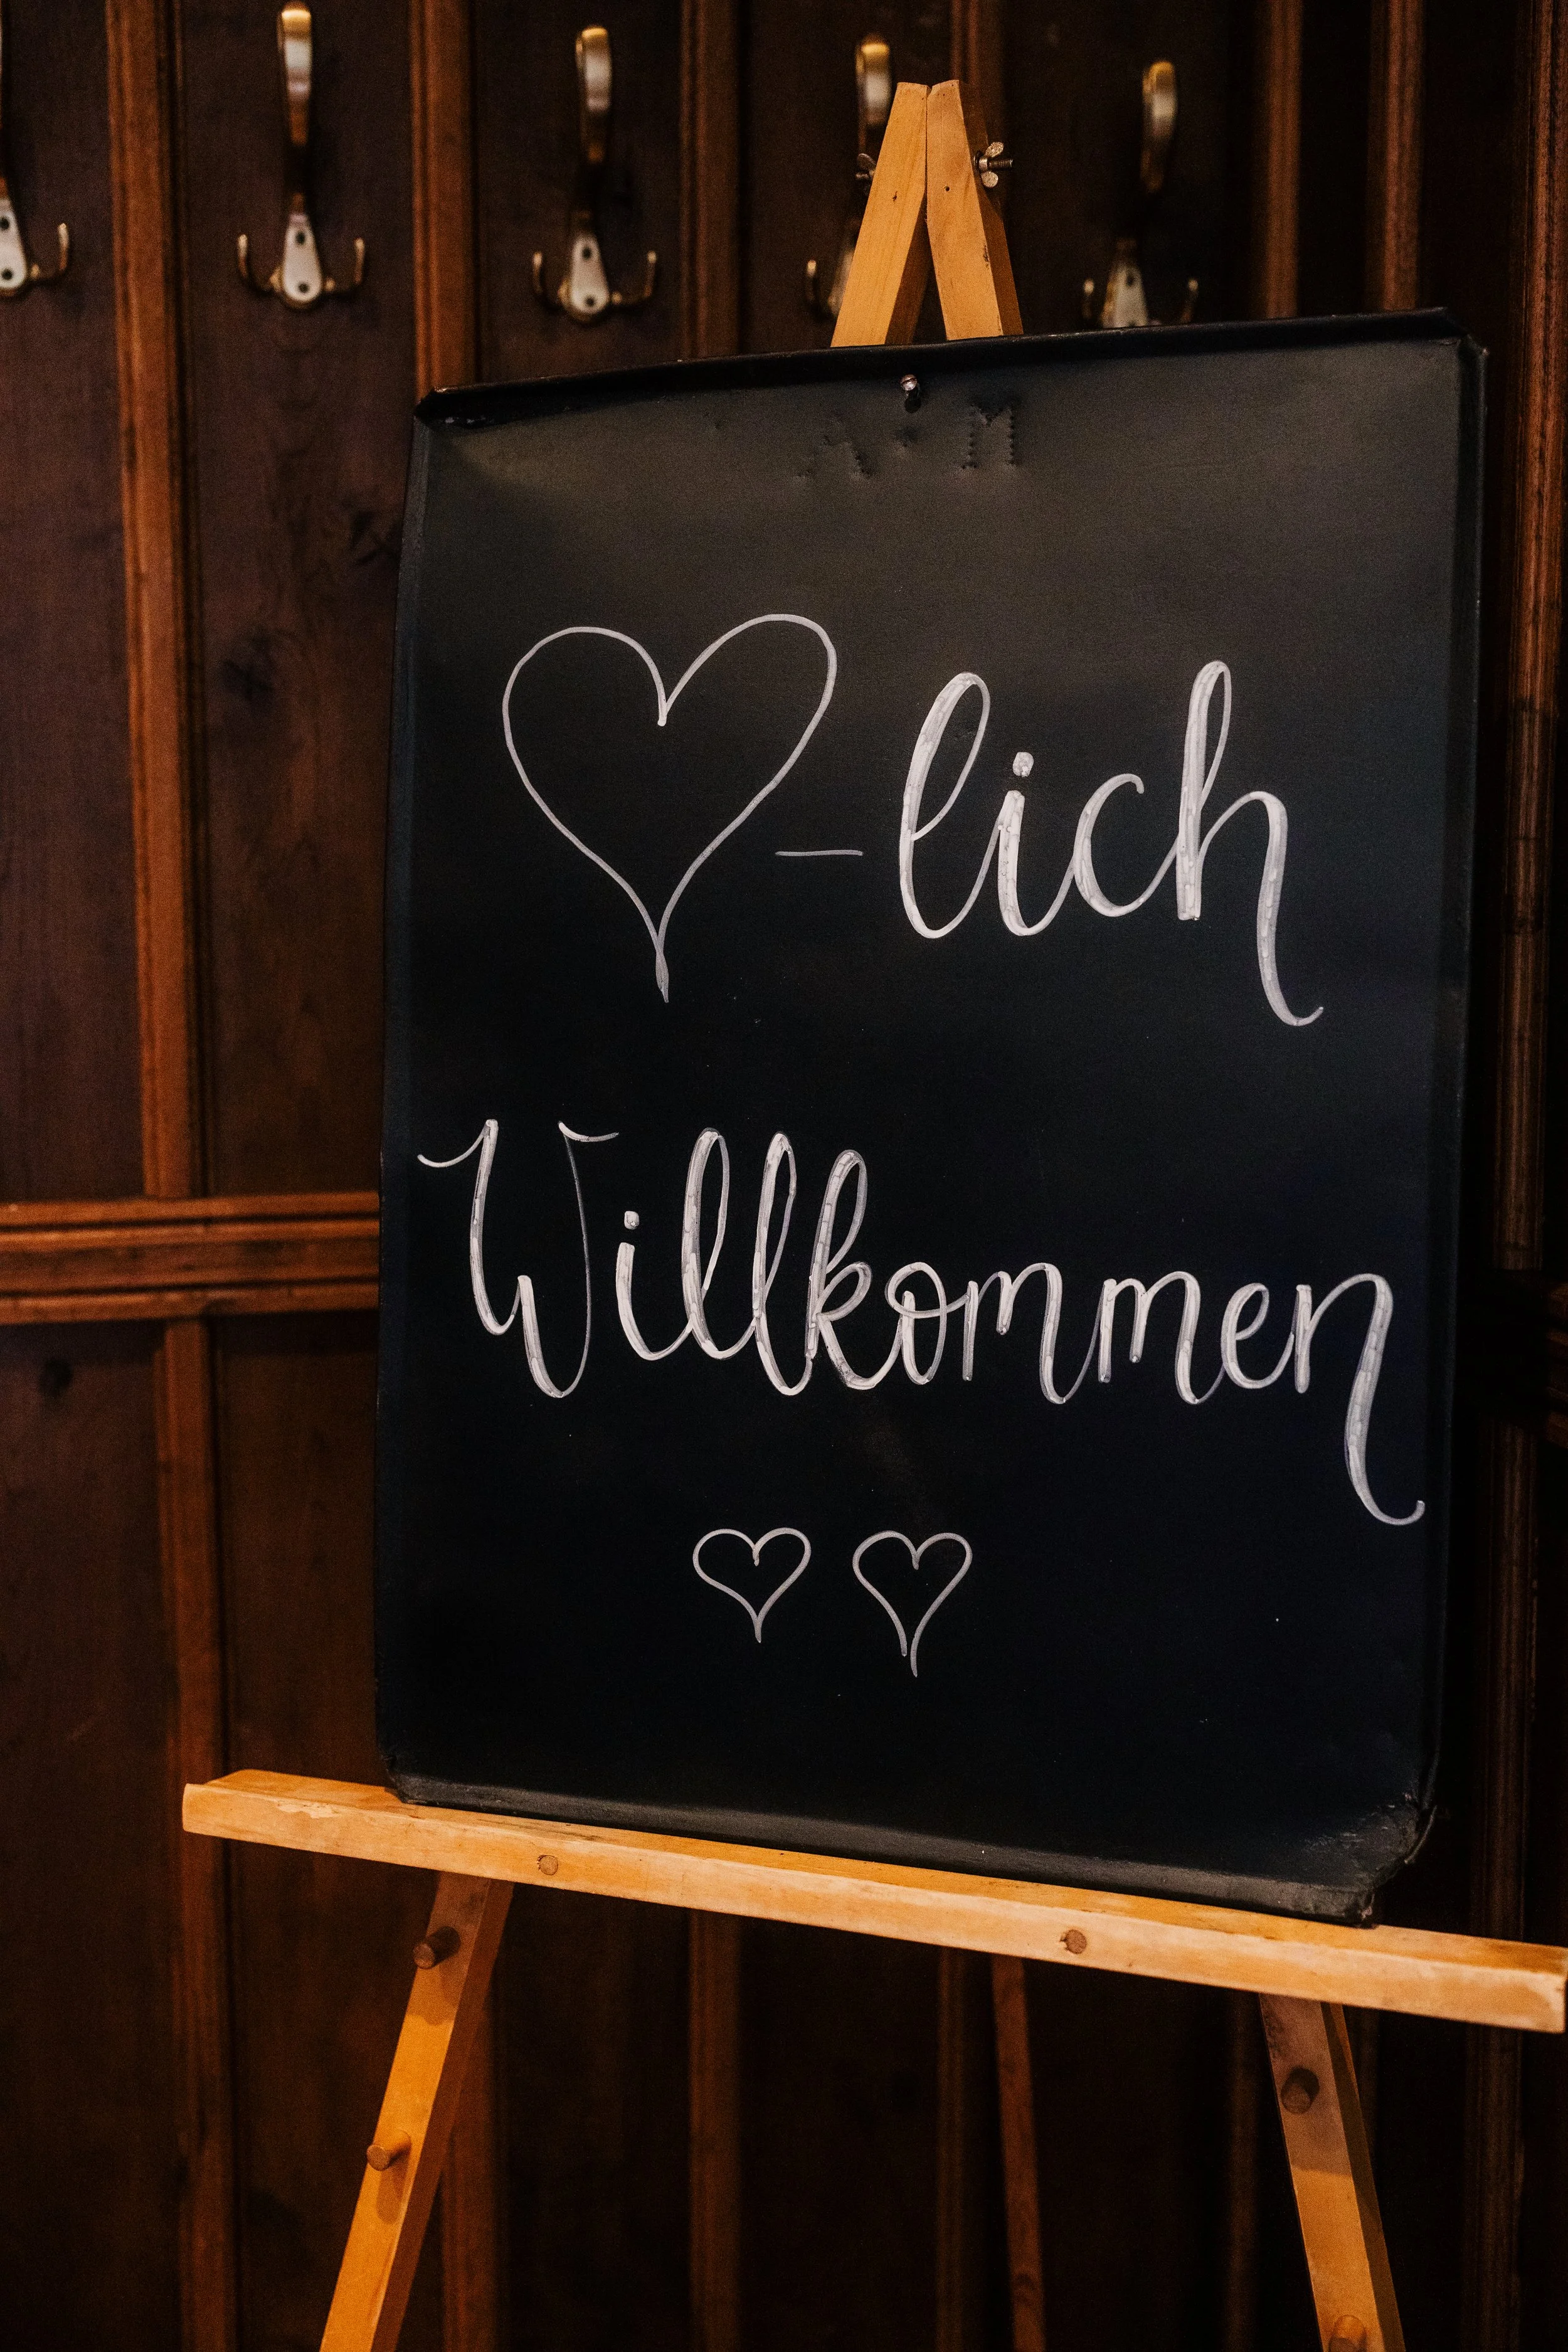 A · M
♡-lich
Willkommen
♡ ♡